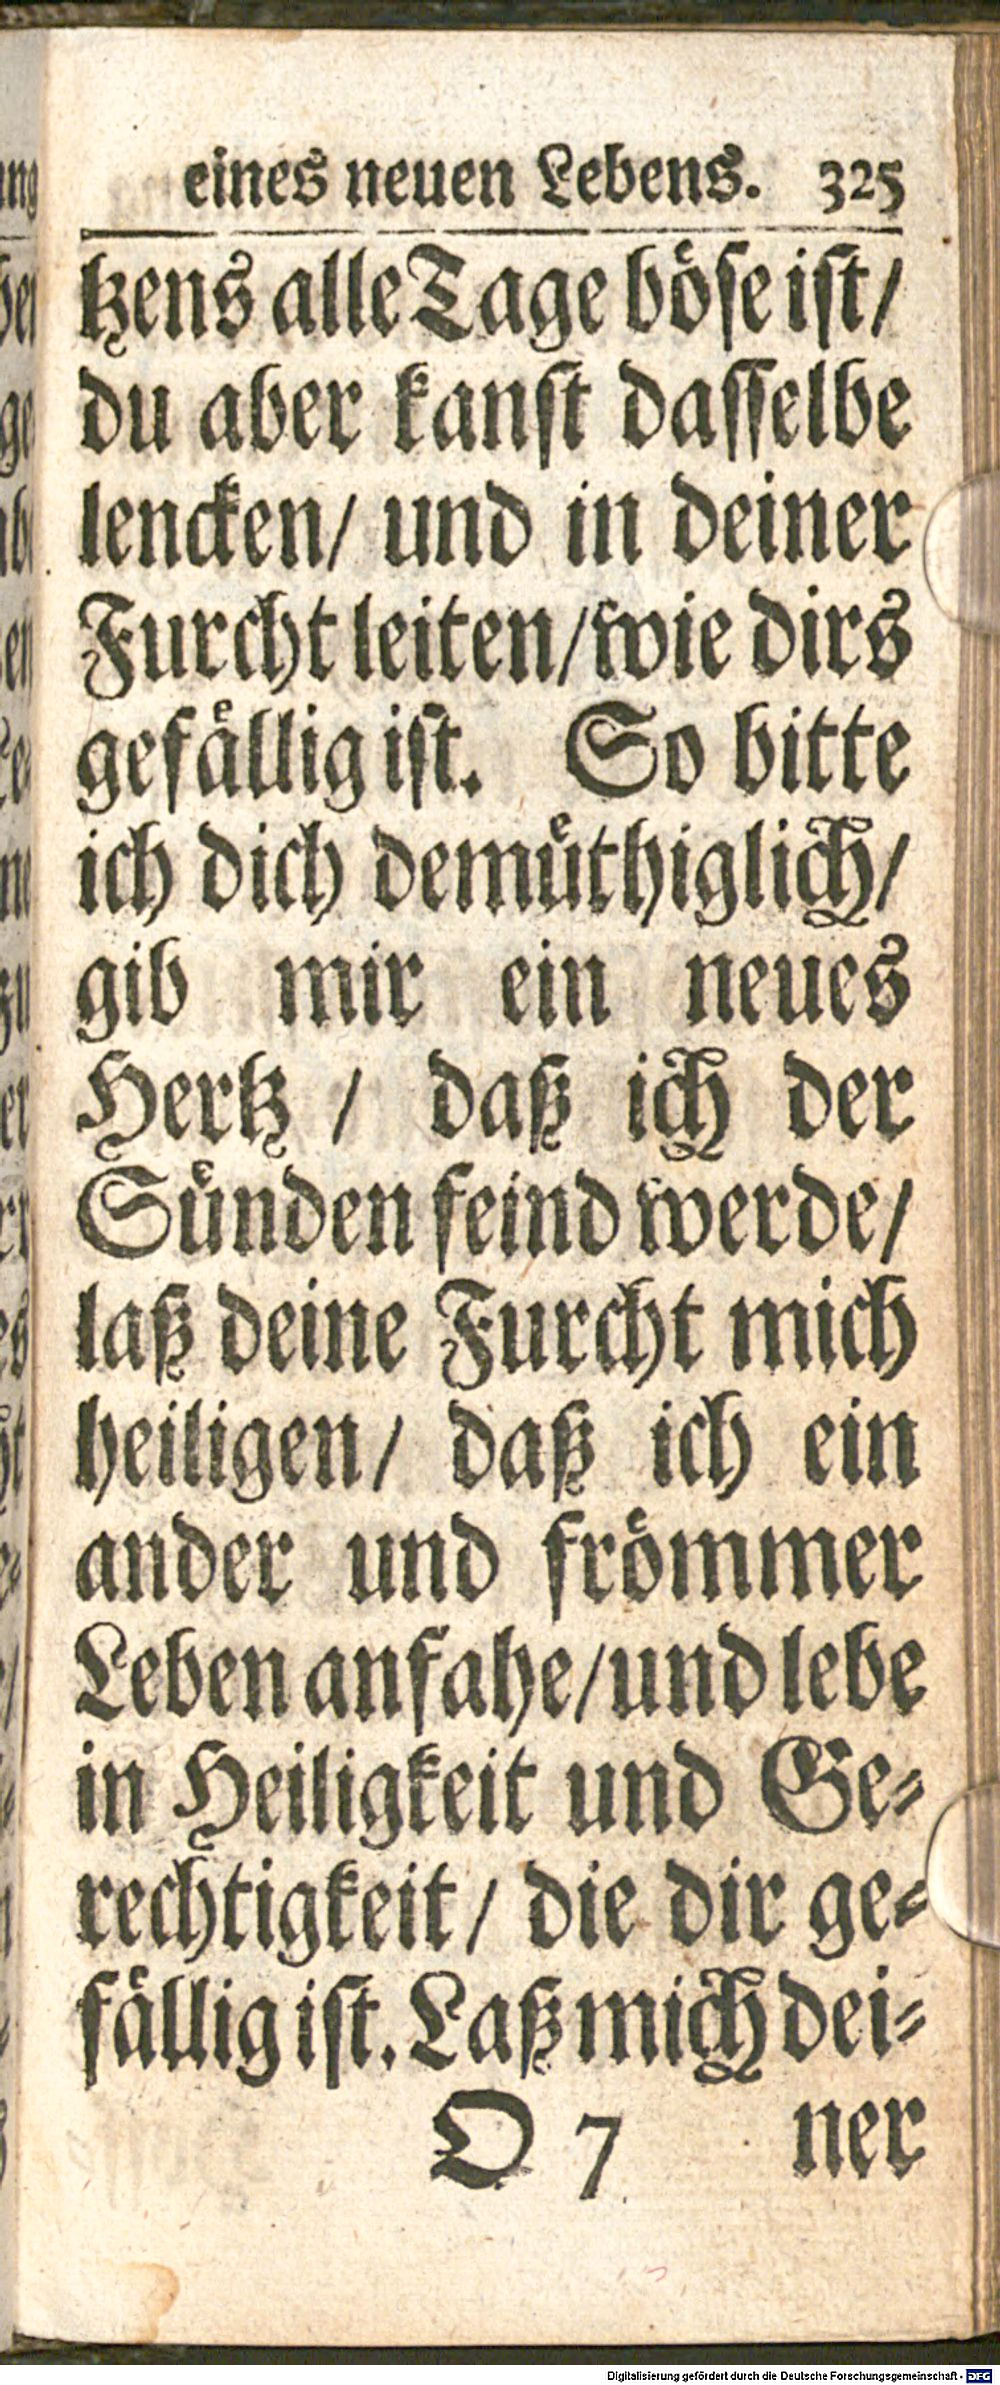 eines neuen Lebens. 325
tzens alle Tage böſe iſt/
du aber kanſt daſſelbe
lencken/ und in deiner
Furcht leiten/ wie dirs
gefaͤllig iſt. So bitte
ich dich demuͤthiglich/
gib mir ein neues
Hertz / daß ich der
Suͤnden feind werde/
laß deine Furcht mich
heiligen/ daß ich ein
ander und froͤmmer
Leben anfahe/ und lebe
in Heiligkeit und Ge⸗
rechtigkeit/ die dir ge⸗
faͤllig iſt. Laß mich dei⸗
O 7 ner
Digitalisierung gefördert durch die Deutsche Forschungsgemeinschaft - DFG